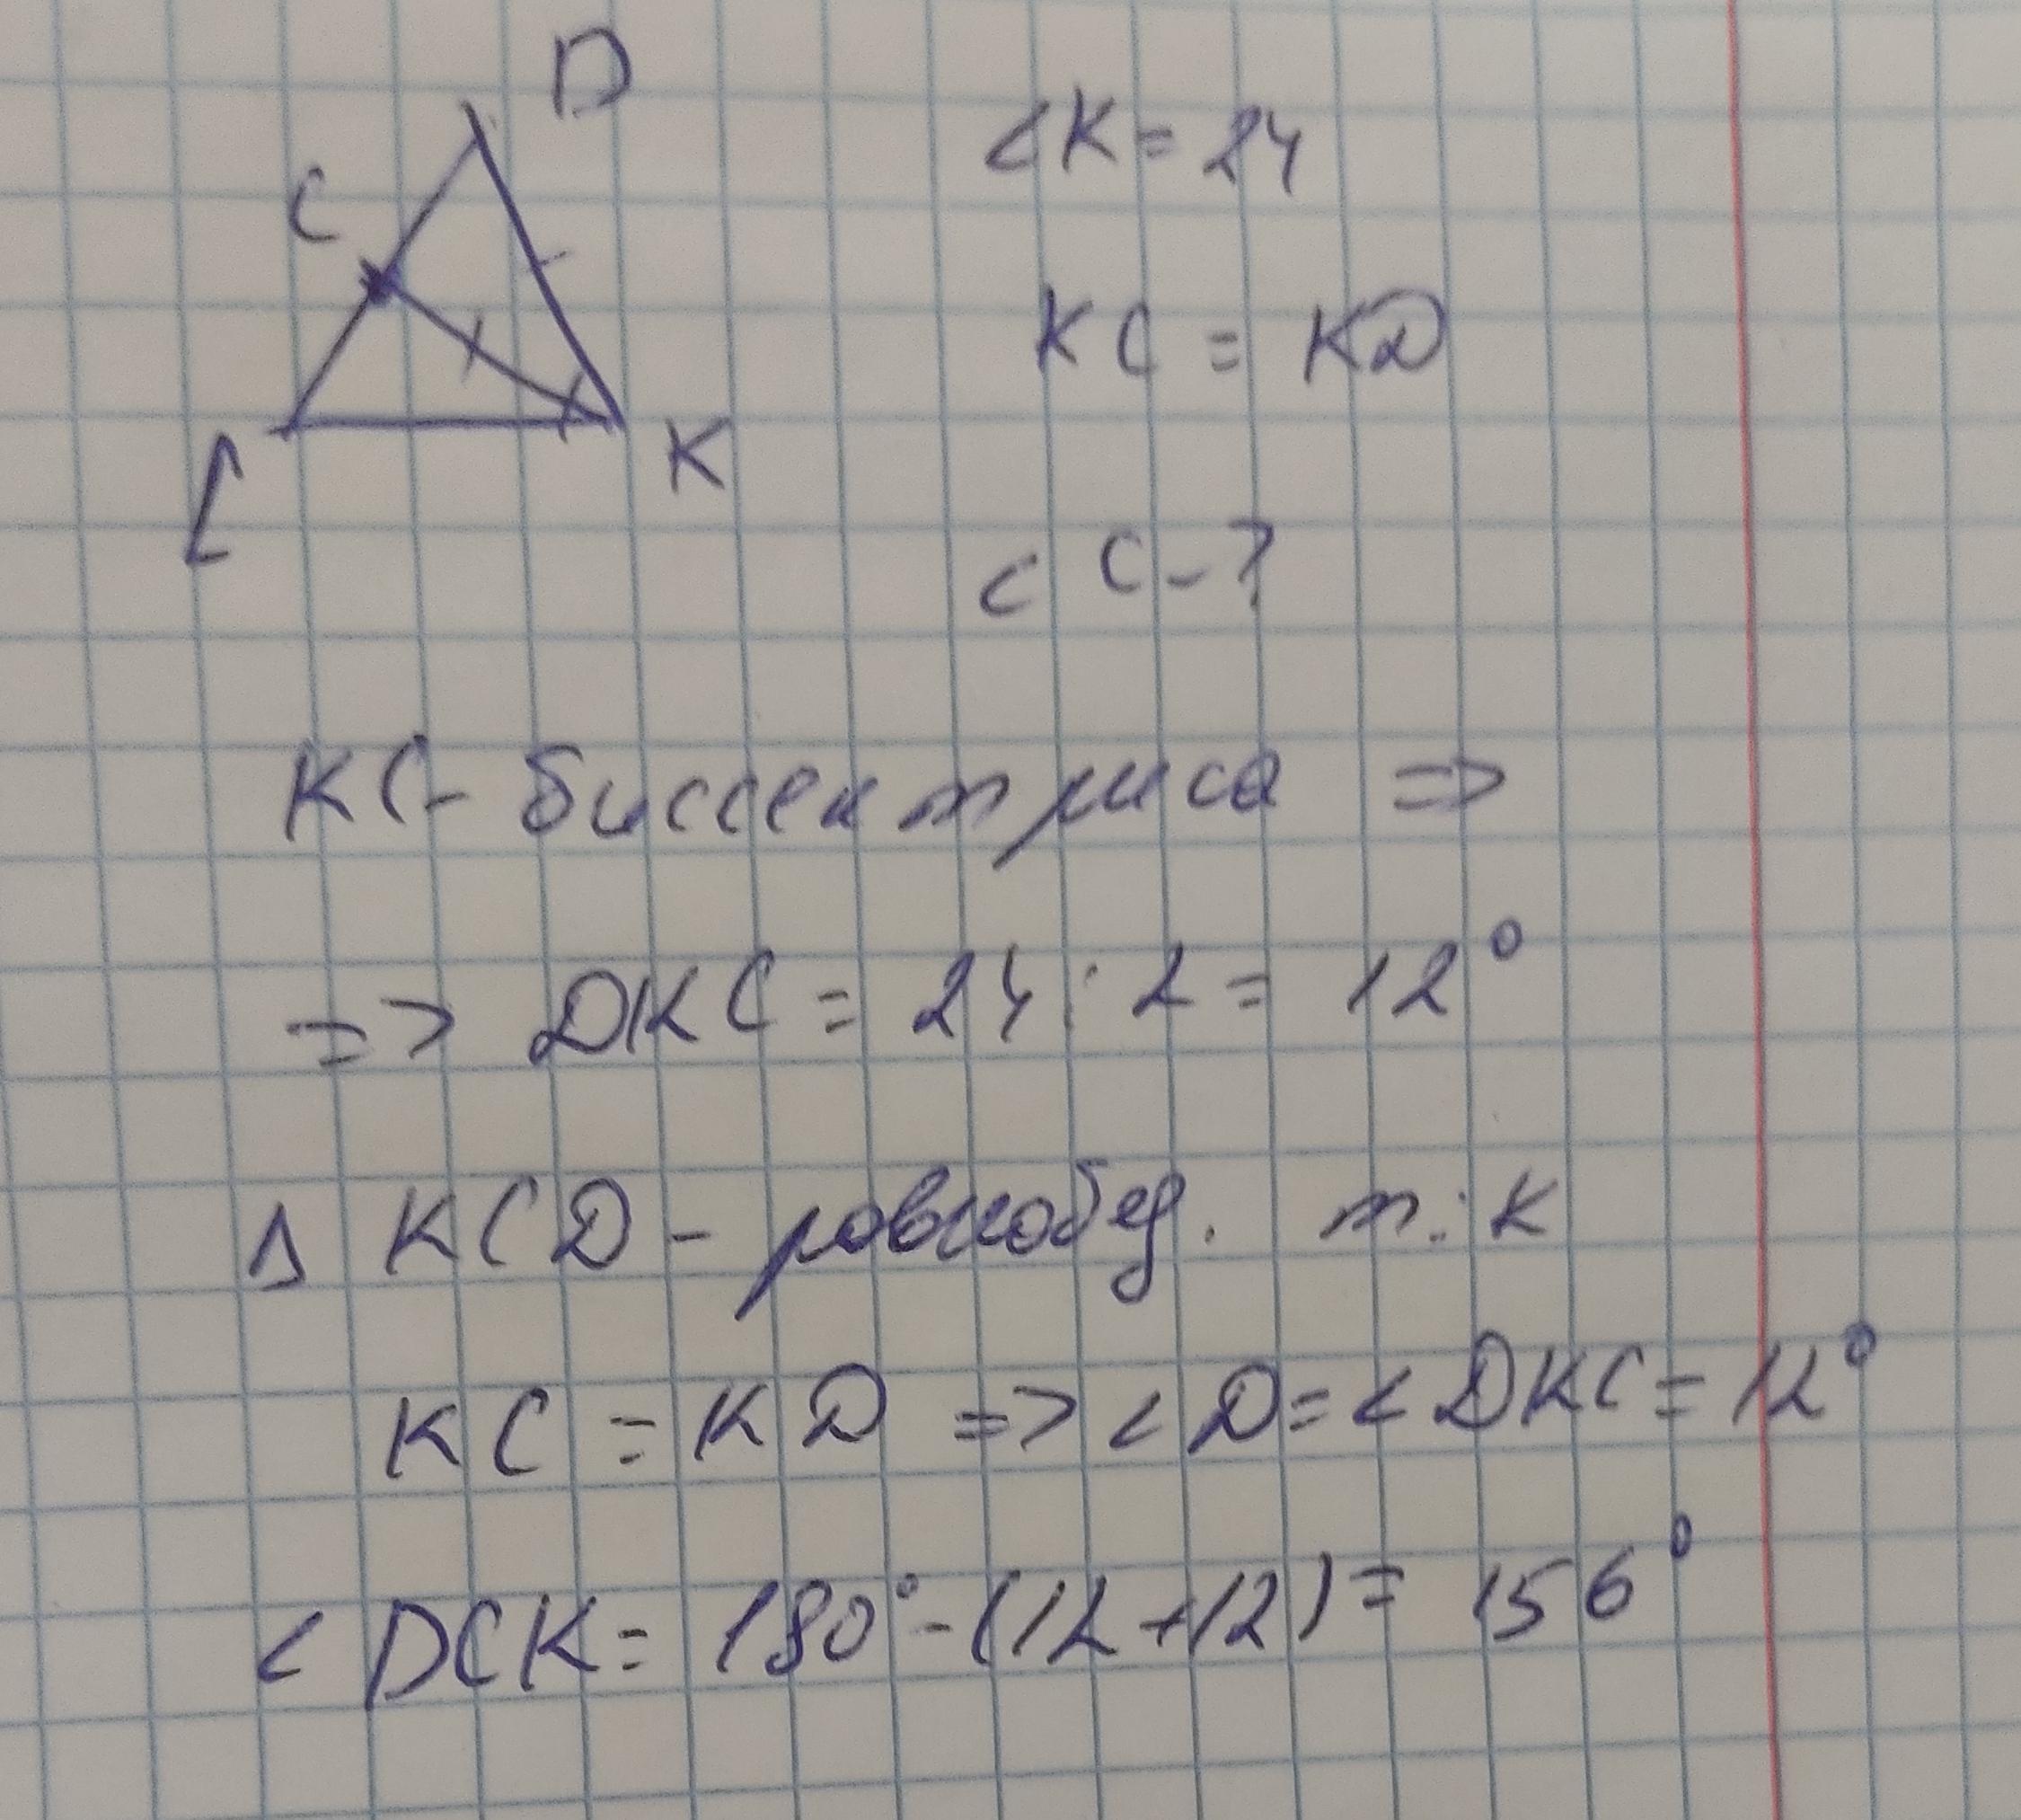 D
C
L
K
<K = 24
KC = KD
<C - ?
KC - биссектриса =>
=> DKC = 24 : 2 = 12°
Δ KCD - равнобед. т.к
KC = KD => <D = <DKC = 12°
<DCK = 180° - (12 + 12) = 156°